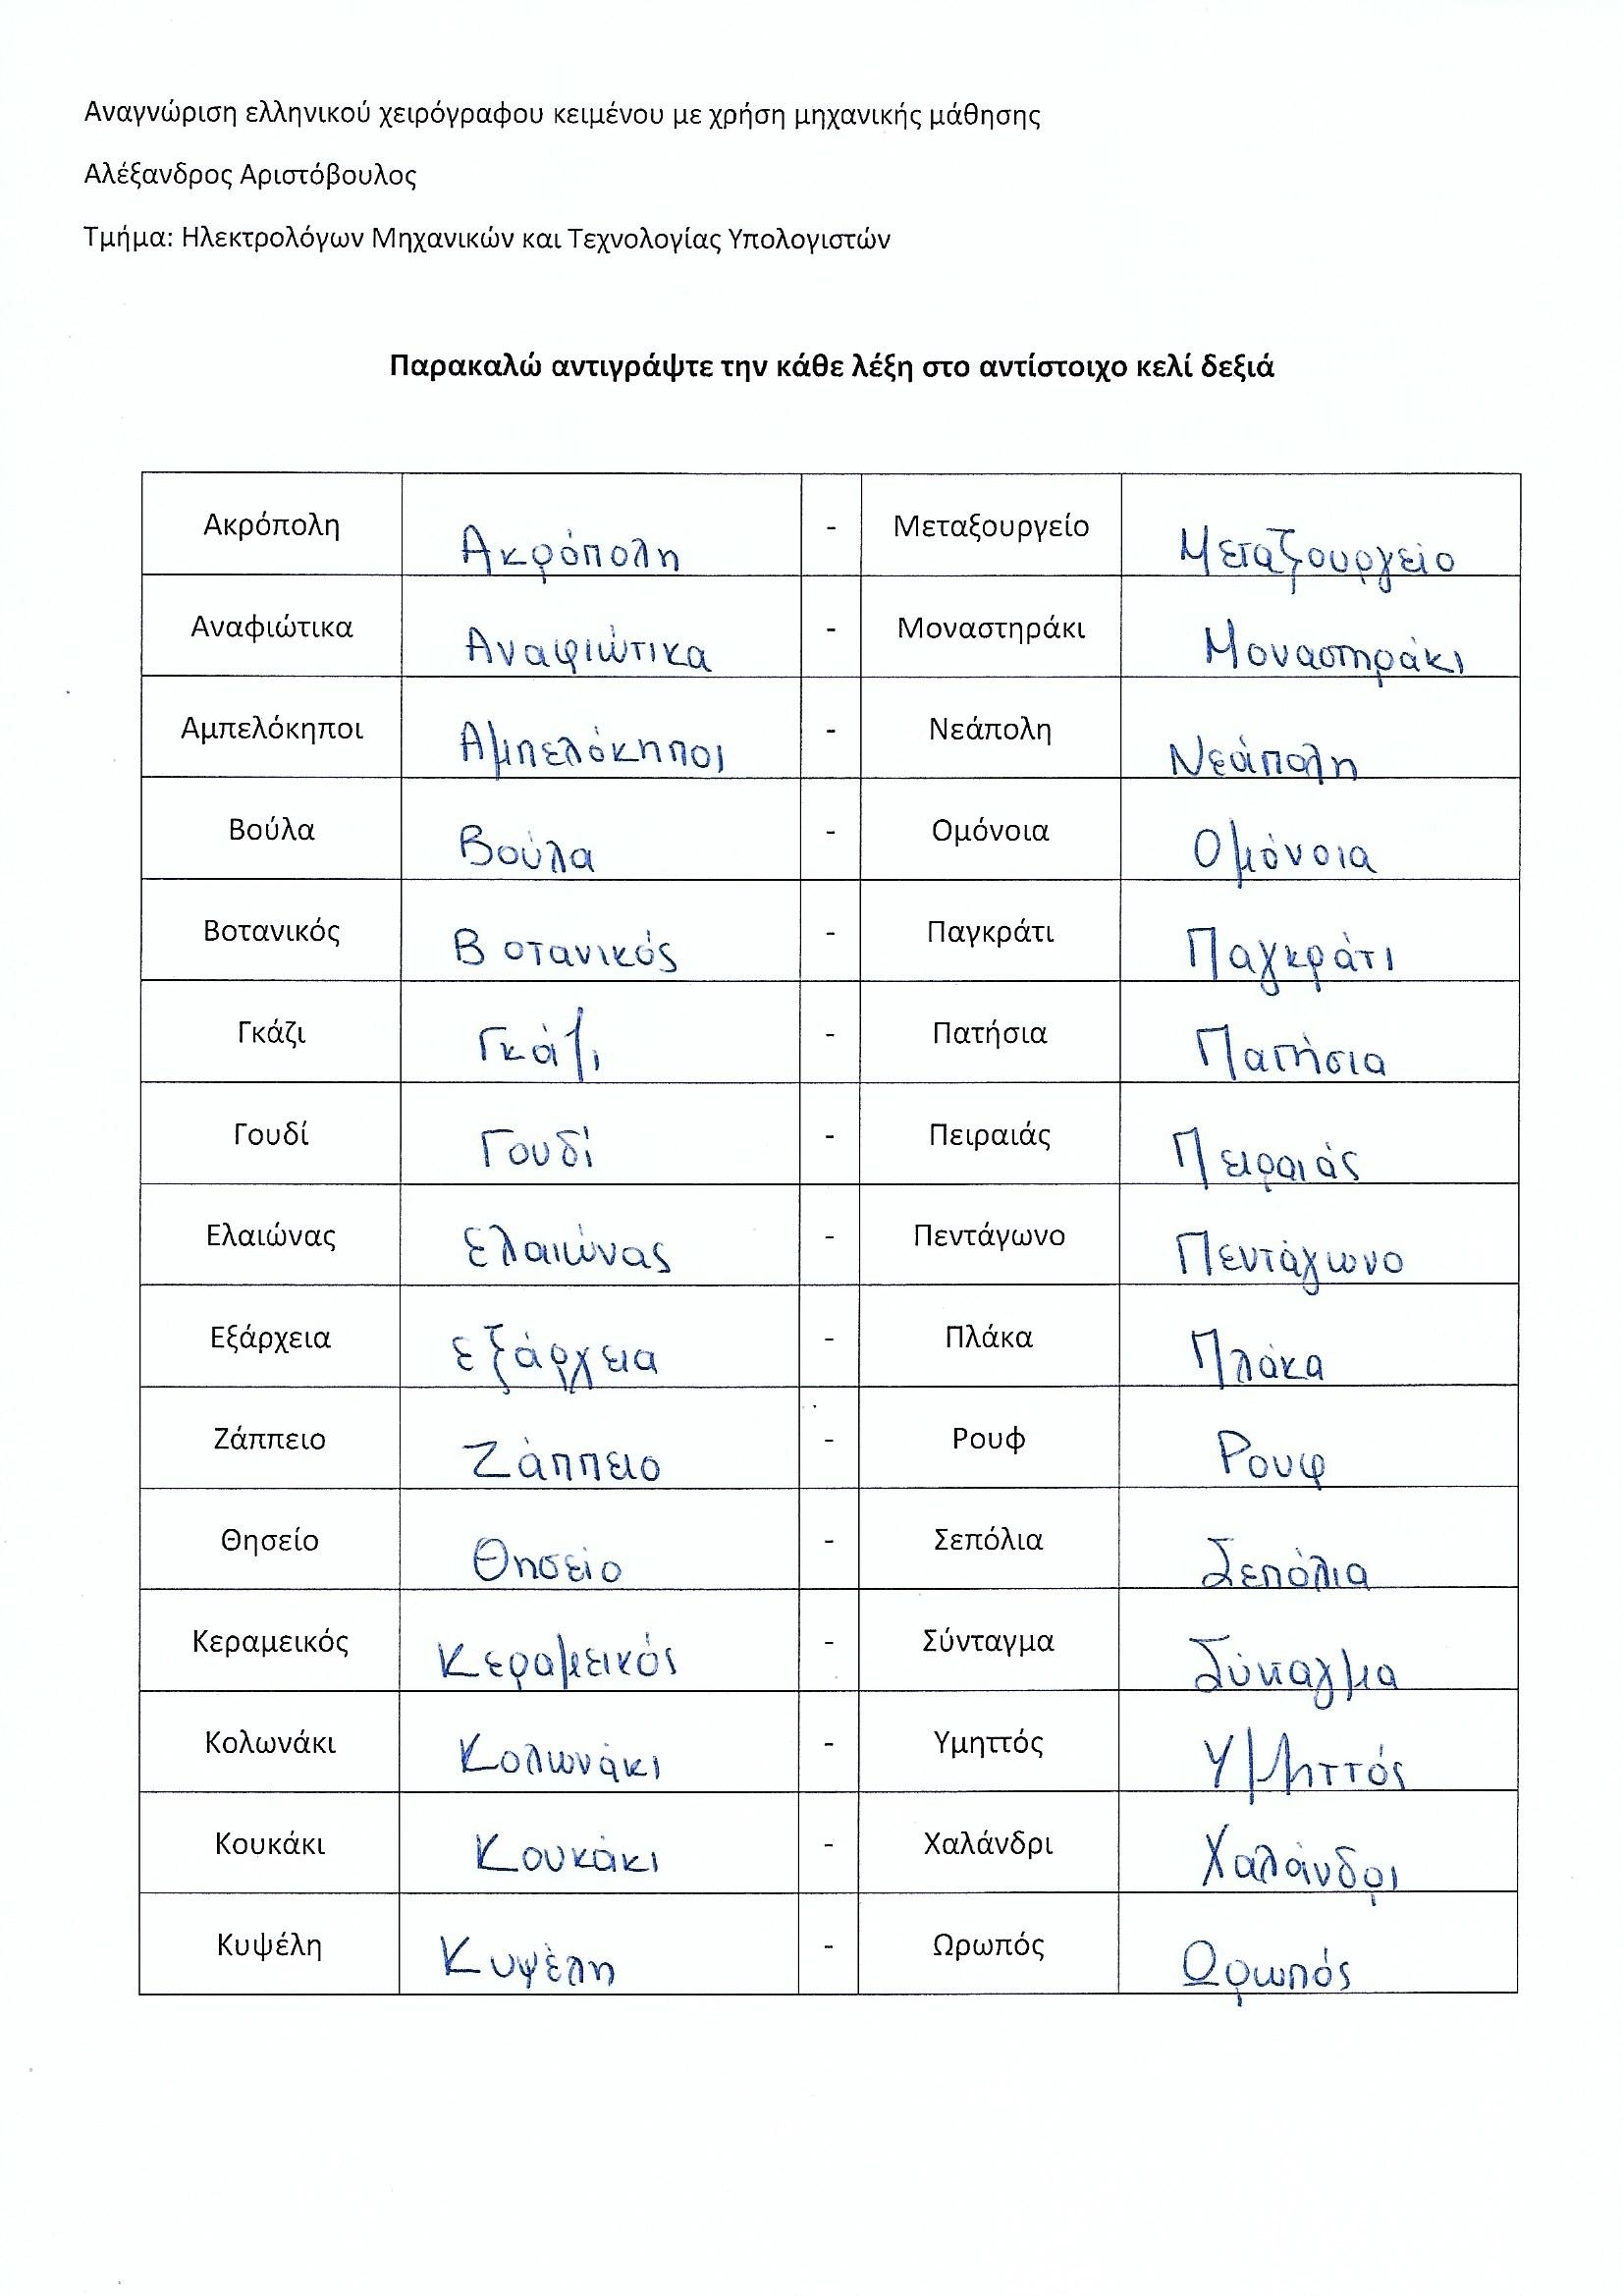 Αναγνώριση ελληνικού χειρόγραφου κειμένου με χρήση μηχανικής μάθησης
Αλέξανδρος Αριστόβουλος
Τμήμα: Ηλεκτρολόγων Μηχανικών και Τεχνολογίας Υπολογιστών
Παρακαλώ αντιγράψτε την κάθε λέξη στο αντίστοιχο κελί δεξιά
Ακρόπολη Ακρόπολη - Μεταξουργείο Μεταξουργείο
Αναφιώτικα Αναφιώτικα - Μοναστηράκι Μοναστηράκι
Αμπελόκηποι Αμπελόκηποι - Νεάπολη Νεάπολη
Βούλα Βούλα - Ομόνοια Ομόνοια
Βοτανικός Βοτανικός - Παγκράτι Παγκράτι
Γκάζι Γκάζι - Πατήσια Πατήσια
Γουδί Γουδί - Πειραιάς Πειραιάς
Ελαιώνας Ελαιώνας - Πεντάγωνο Πεντάγωνο
Εξάρχεια εξάρχεια - Πλάκα Πλάκα
Ζάππειο Ζάππειο - Ρουφ Ρουφ
Θησείο Θησείο - Σεπόλια Σεπόλια
Κεραμεικός Κεραμεικός - Σύνταγμα Σύνταγμα
Κολωνάκι Κολωνάκι - Υμηττός Υμηττός
Κουκάκι Κουκάκι - Χαλάνδρι Χαλάνδρι
Κυψέλη Κυψέλη - Ωρωπός Ωρωπός